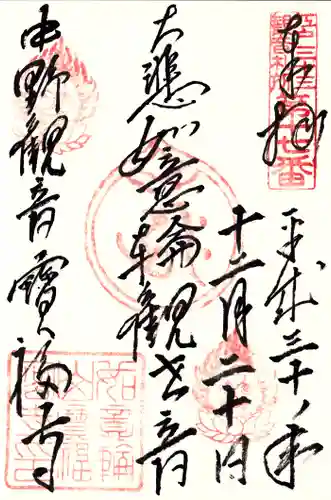 奉拝
平成三十年
十二月二十日
大悲如意輪観世音
中野観音寶福寺